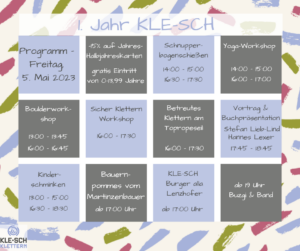 1. Jahr KLE-SCH
Programm -
Freitag,
5. Mai 2023
-15% auf Jahres-
Halbjahreskarten
gratis Eintritt
von 0-13,99 Jahre
Schnupper-
bogenschießen
14:00 - 15:00
16:30 - 17:30
Yoga-Workshop
14:00 - 15:00
16:00 - 17:00
Boulderwork-
shop
13:00 - 13:45
16:00 - 16:45
Sicher Klettern
Workshop
16:00 - 17:30
Betreutes
Klettern am
Topropeseil
16:00 - 17:30
Vortrag &
Buchpräsentation
Stefan Lieb-Lind
Hannes Leser
17:45 - 18:45
Kinder-
schminken
15:00
Bauern-
pommes vom
Martinzenbauer
ab 17:00 Uhr
KLE-SCH
Burger alla
Lendhofer
ab 17:00 Uhr
ab 19 Uhr
Buzgi & Band
KLE-SCH
KLETTERN